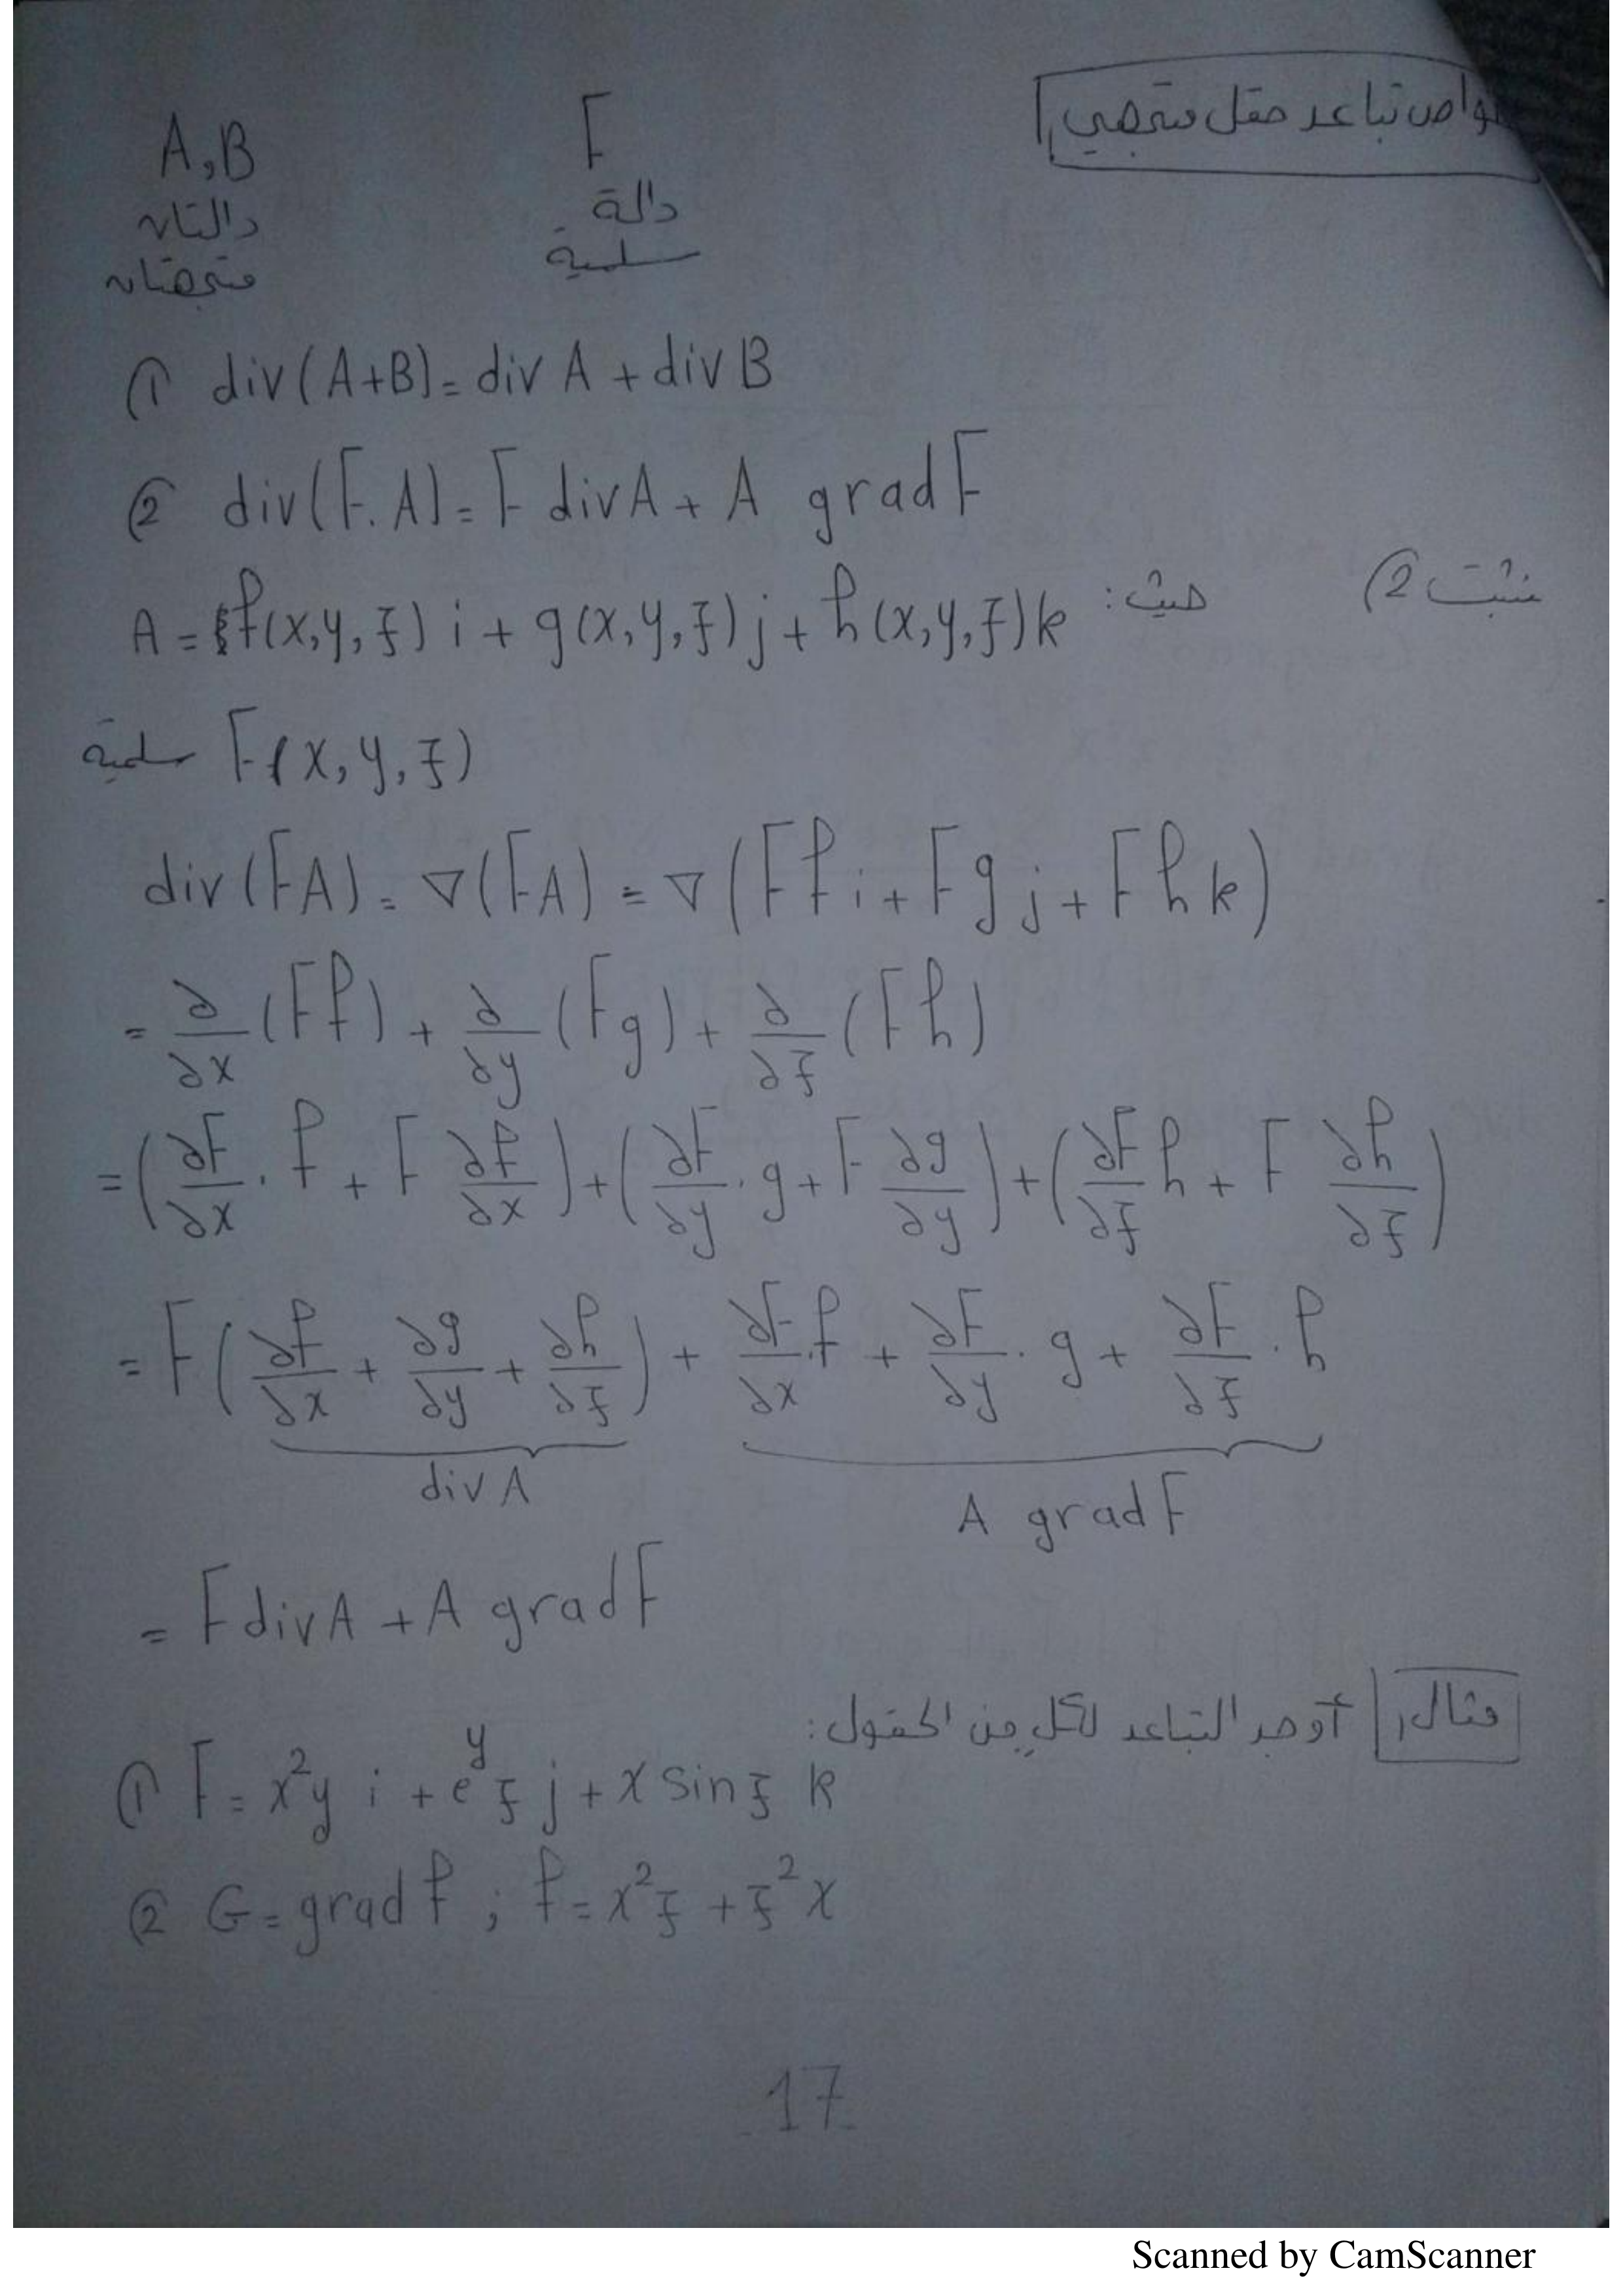 خواص تباعد حقل متجهي
A,B F
دالتان دالة
متجهتان سلمية
① div(A+B) = div A + div B
② div(F.A) = F div A + A grad F
نثبت ② حيث:
A = f(x,y,z) i + g(x,y,z) j + h(x,y,z) k
F(x,y,z) سلمية
div(FA) = ∇(FA) = ∇(Ff i + Fg j + Fh k)
= ∂/∂x (Ff) + ∂/∂y (Fg) + ∂/∂z (Fh)
= (∂F/∂x . f + F ∂f/∂x) + (∂F/∂y . g + F ∂g/∂y) + (∂F/∂z h + F ∂h/∂z)
= F(∂f/∂x + ∂g/∂y + ∂h/∂z) + ∂F/∂x . f + ∂F/∂y . g + ∂F/∂z . h
div A A grad F
= F div A + A grad F
مثال أوجد التباعد لكل من الحقول:
① F = x²y i + e^y z j + x sin z k
② G = grad f ; f = x²z + z²x
17
Scanned by CamScanner